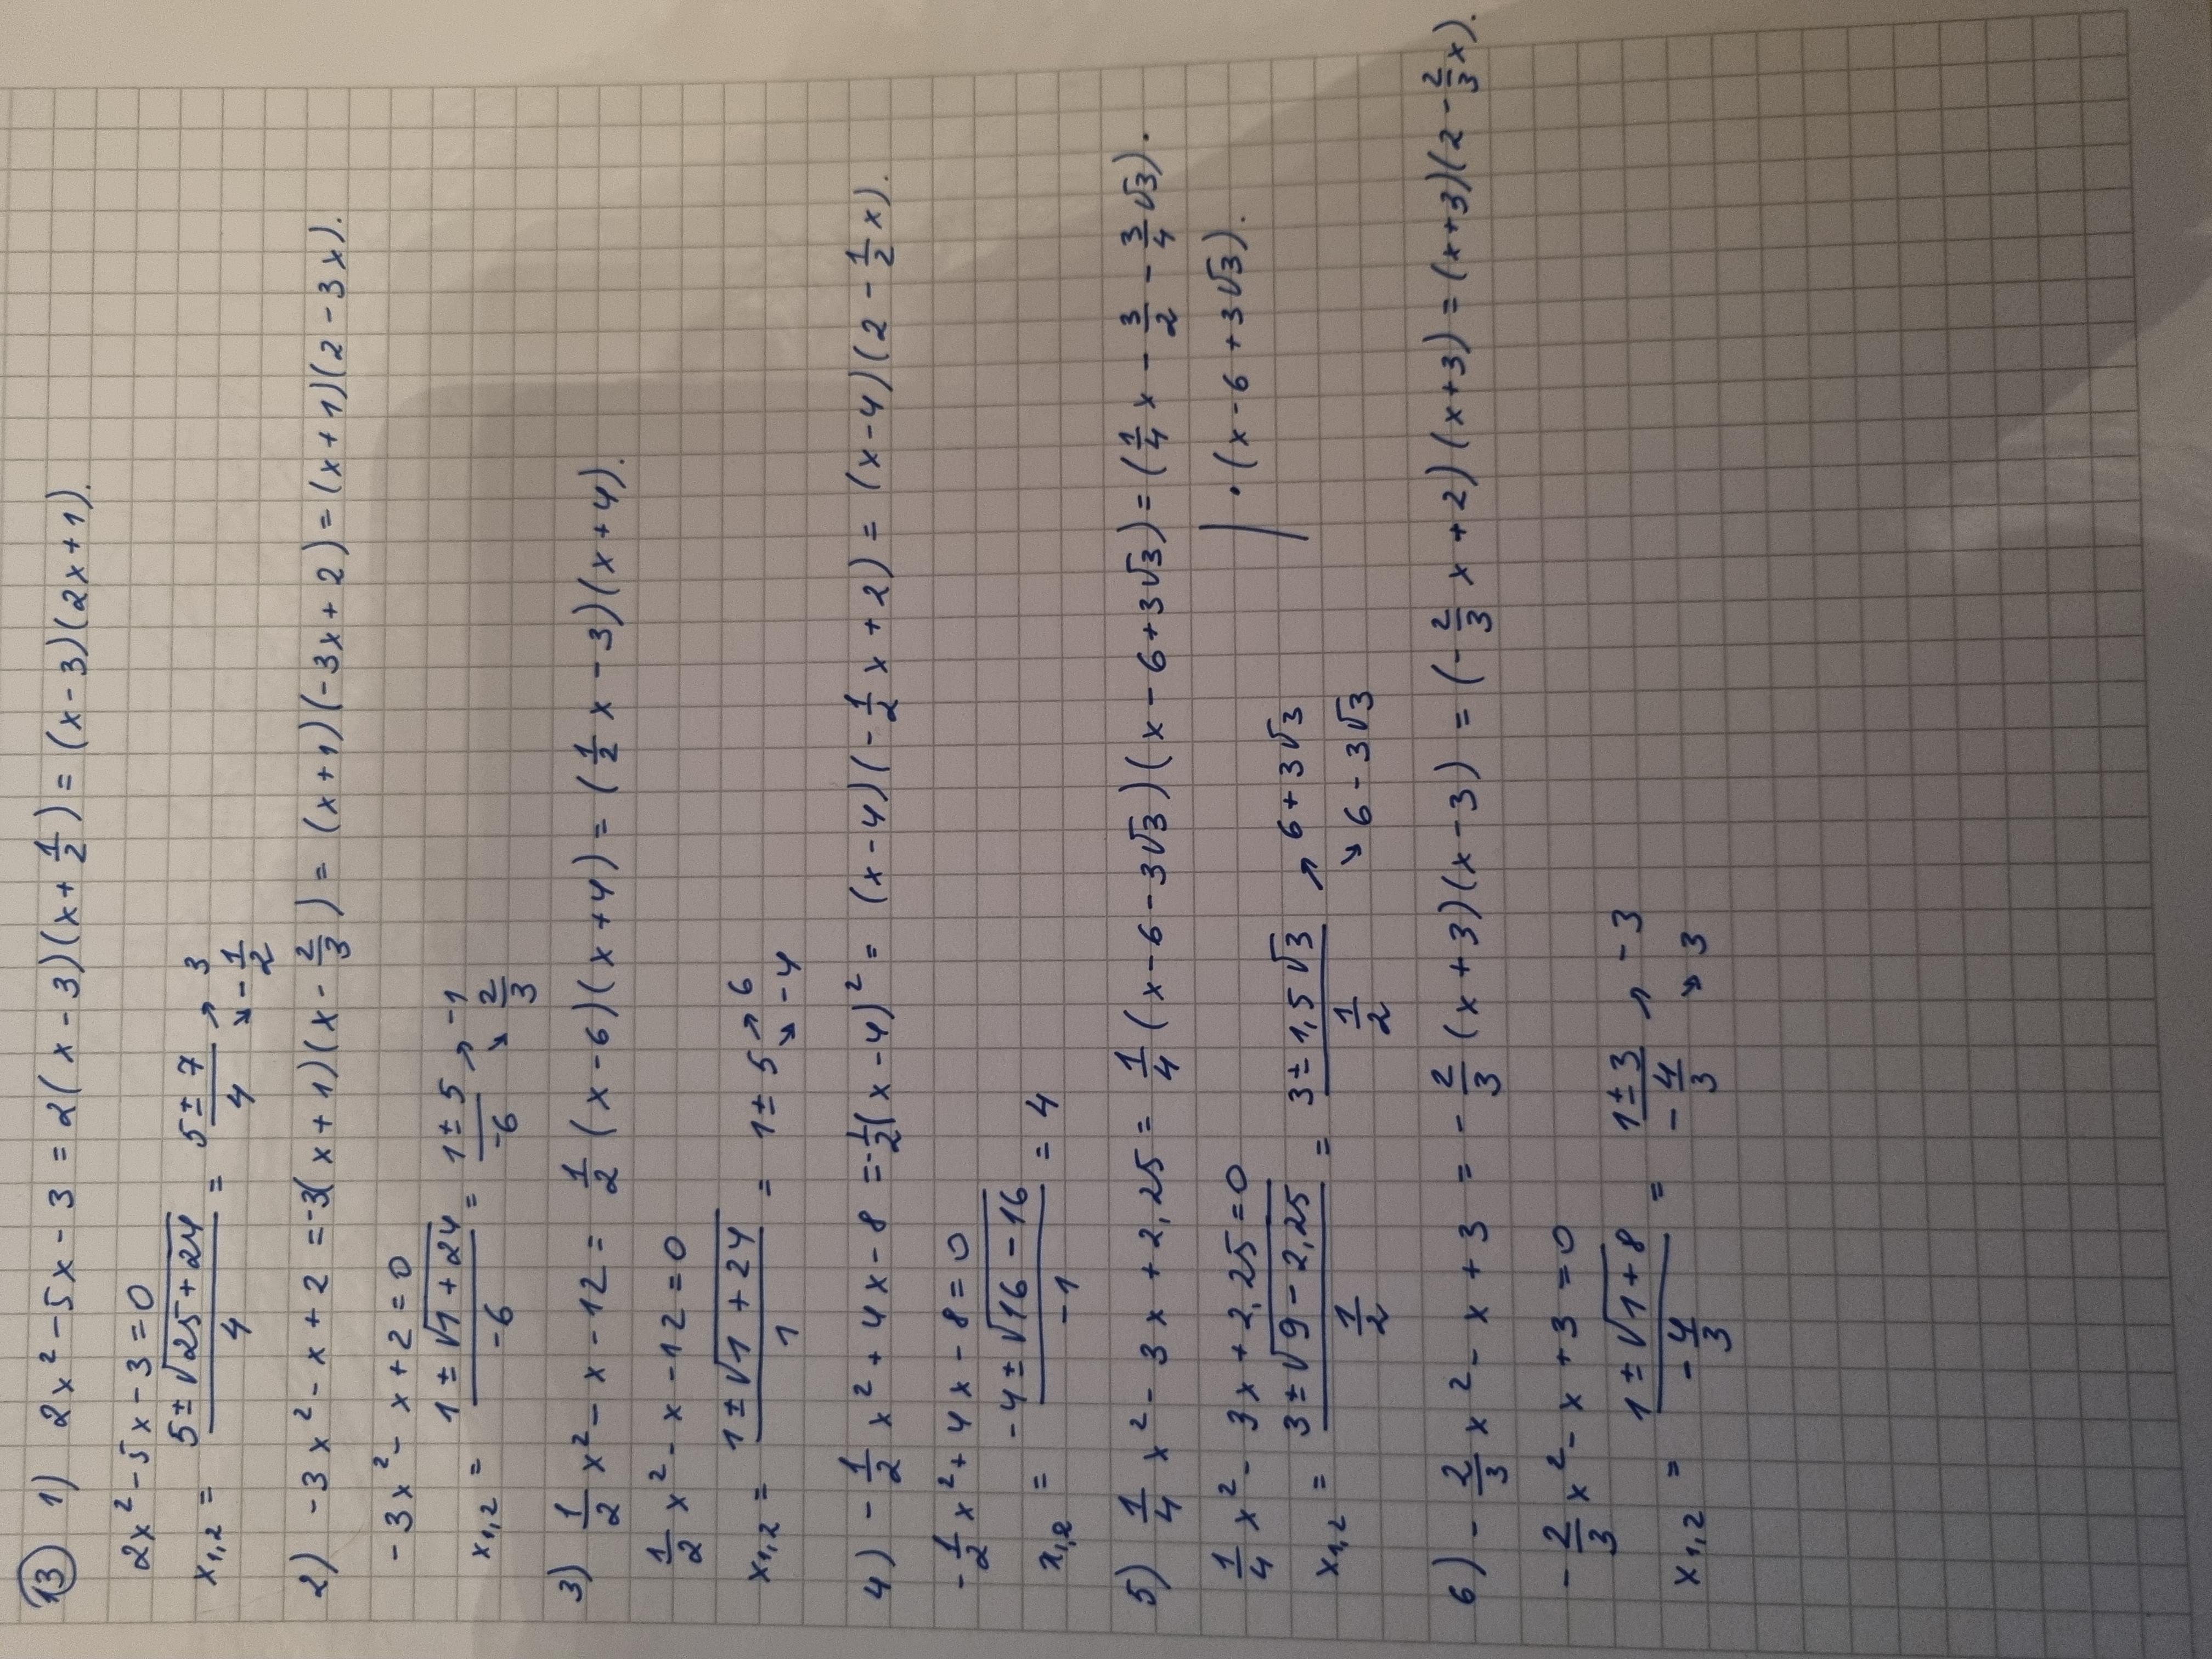 13) 1) 2x² - 5x - 3 = 2(x - 3)(x + 1/2) = (x - 3)(2x + 1).
2x² - 5x - 3 = 0
x₁,₂ = (5 ± √(25 + 24))/4 = (5 ± 7)/4 ↗ 3 ↘ - 1/2
2) -3x² - x + 2 = -3(x + 1)(x - 2/3) = (x + 1)(-3x + 2) = (x + 1)(2 - 3x).
-3x² - x + 2 = 0
x₁,₂ = (1 ± √(1 + 24))/-6 = (1 ± 5)/-6 ↗ -1 ↘ 2/3
3) 1/2 x² - x - 12 = 1/2 (x - 6)(x + 4) = (1/2 x - 3)(x + 4).
1/2 x² - x - 12 = 0
x₁,₂ = (1 ± √(1 + 24))/1 = 1 ± 5 ↗ 6 ↘ -4
4) - 1/2 x² + 4x - 8 = -1/2(x - 4)² = (x - 4)(- 1/2 x + 2) = (x - 4)(2 - 1/2 x).
- 1/2 x² + 4x - 8 = 0
x₁,₂ = (-4 ± √(16 - 16))/-1 = 4
5) 1/4 x² - 3x + 2,25 = 1/4 (x - 6 - 3√3)(x - 6 + 3√3) = (1/4 x - 3/2 - 3/4 √3).
· (x - 6 + 3√3).
1/4 x² - 3x + 2,25 = 0
x₁,₂ = (3 ± √(9 - 2,25))/(1/2) = (3 ± 1,5√3)/(1/2) ↗ 6 + 3√3 ↘ 6 - 3√3
6) - 2/3 x² - x + 3 = - 2/3 (x + 3)(x - 3) = (- 2/3 x + 2)(x + 3) = (x + 3)(2 - 2/3 x).
- 2/3 x² - x + 3 = 0
x₁,₂ = (1 ± √(1 + 8))/(- 4/3) = (1 ± 3)/(- 4/3) ↗ -3 ↘ 3